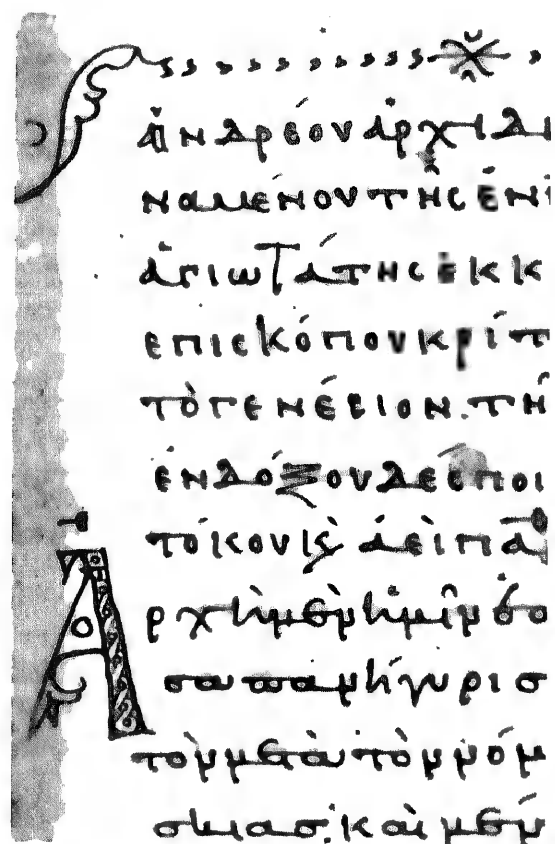 ἀνδρέου ἀρχιδι
ναμένου τῆς ἐνι
ἁγιωτάτης ἐκκ
ἐπισκόπου κρίτ
τὸ γενέσιον. τῆ
ἐνδόξου δεσποι
τόκου κς ἀειπα
Ἀρχὴ μὲν ἡμῖν ἑο
σα πανήγυρισ
τὸν μετὰ τὸν νόμ
σκιασ. καὶ μέν